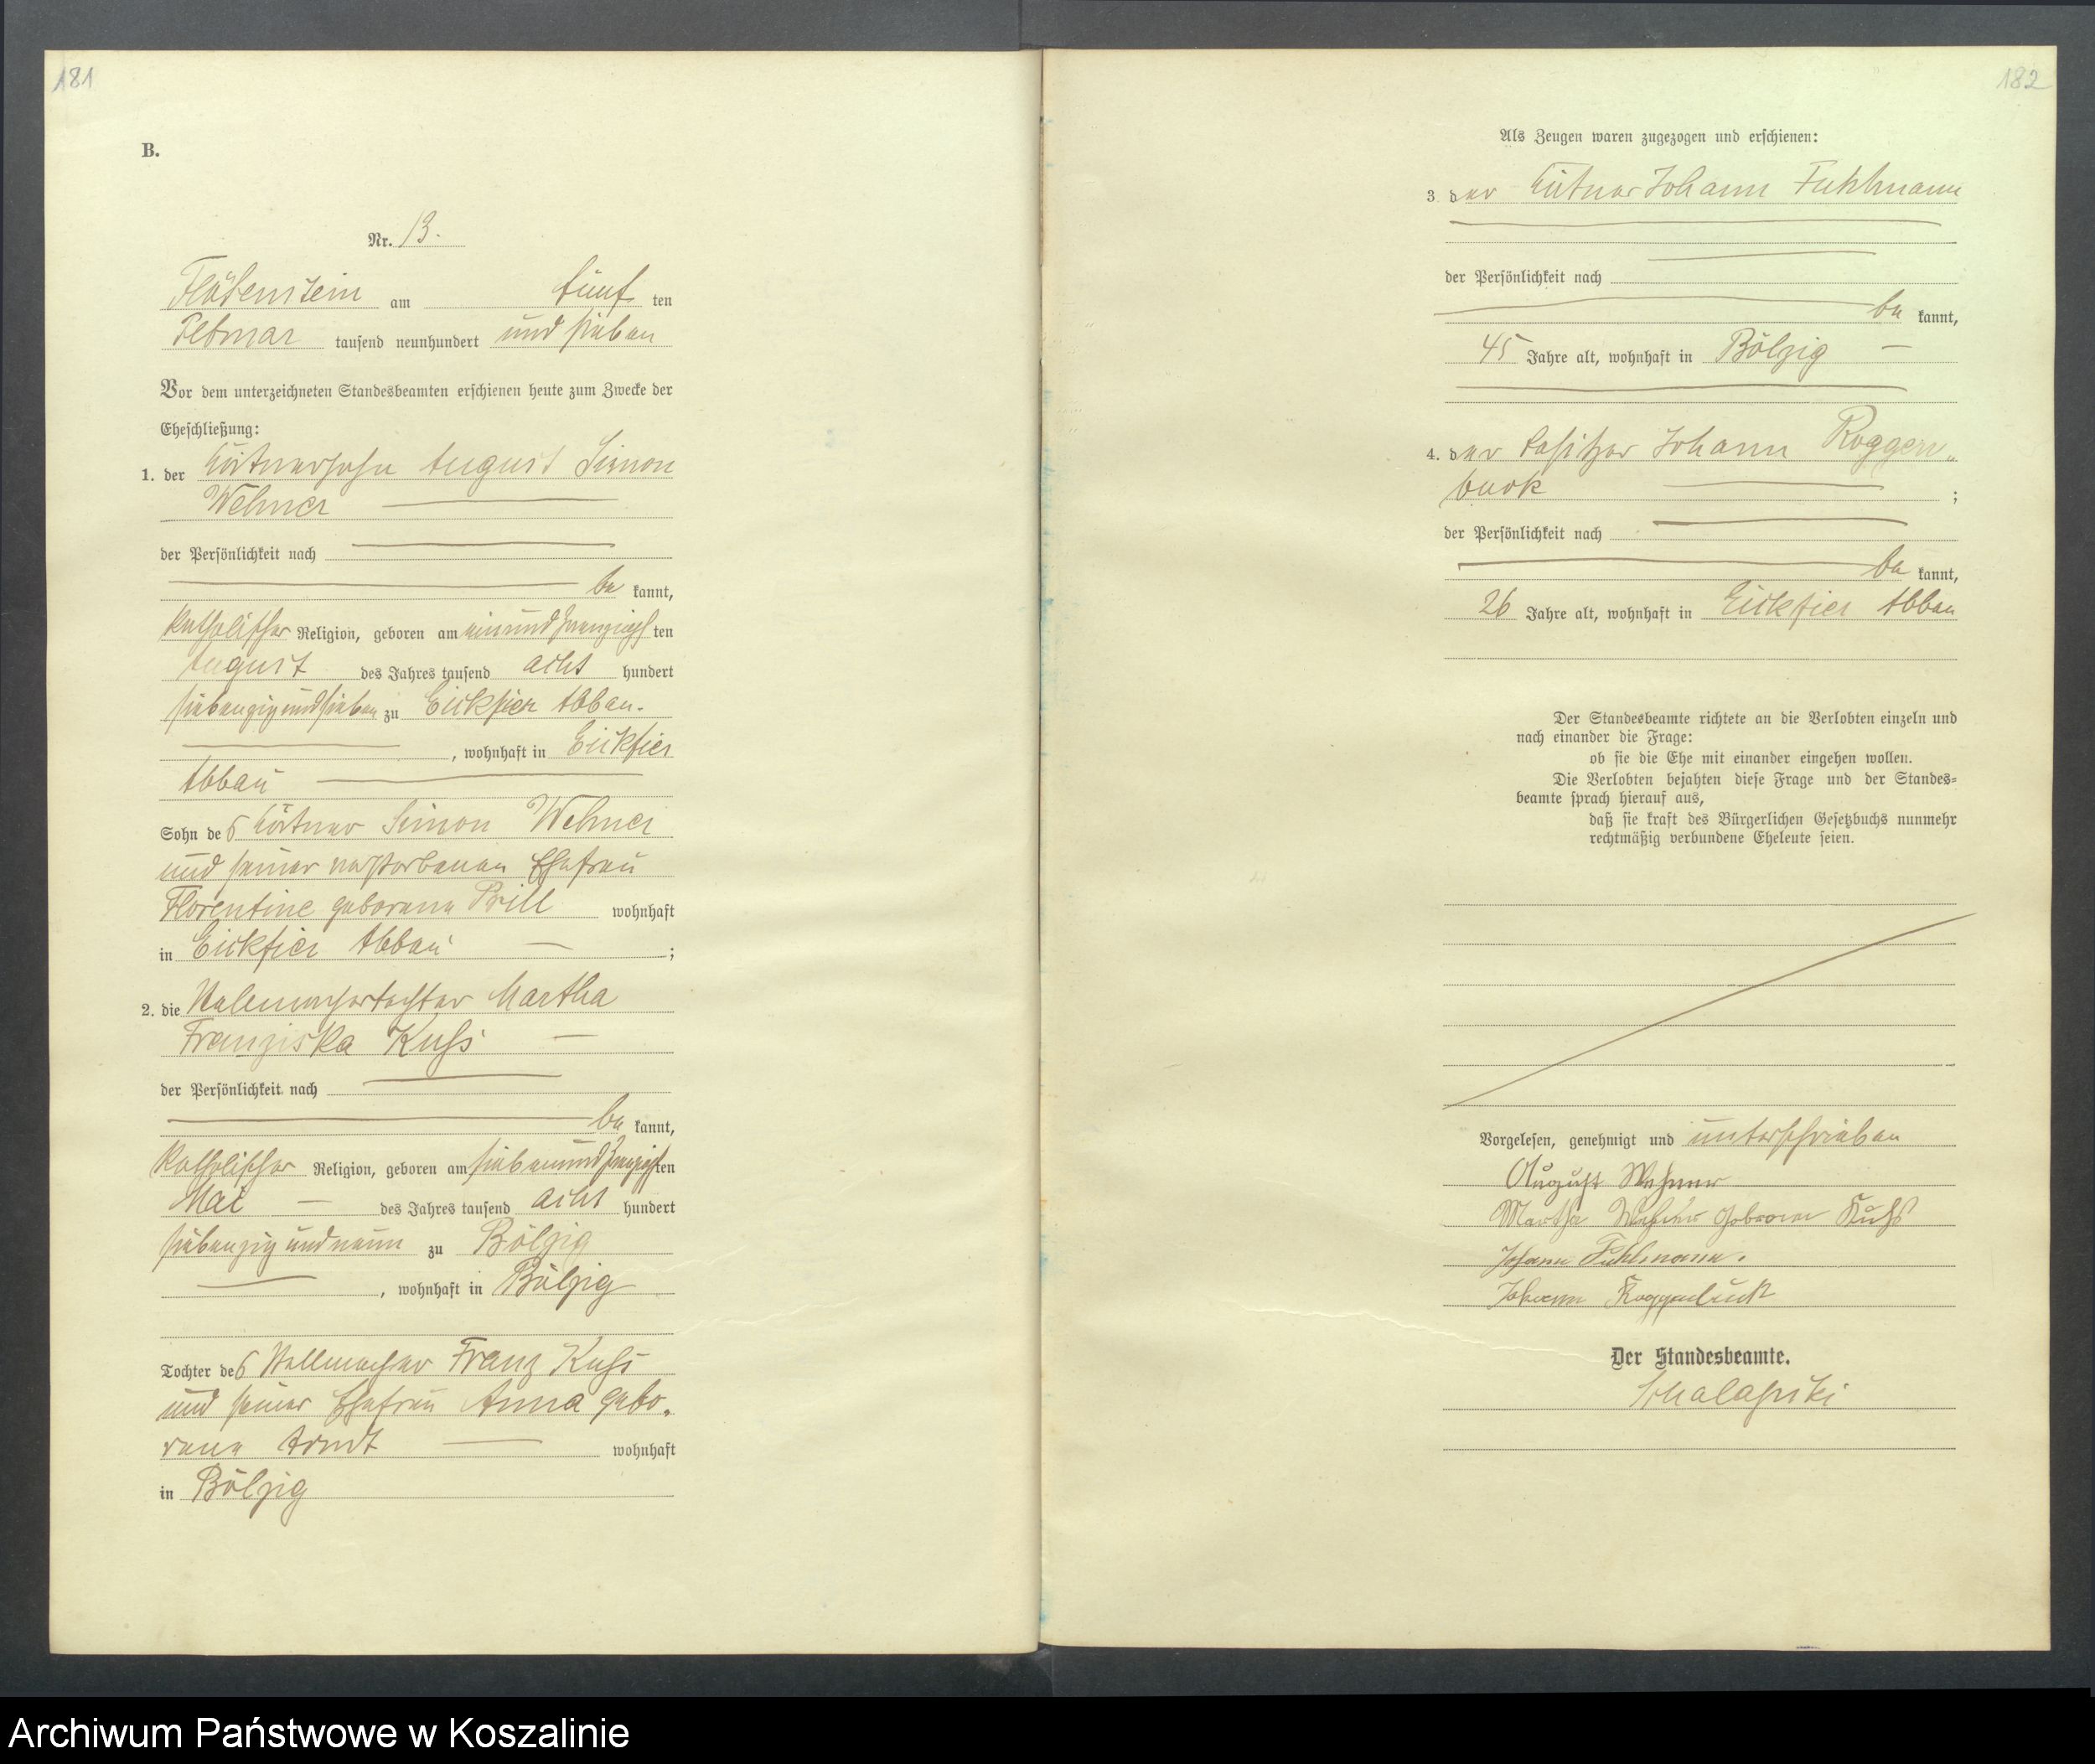 181
B.
Nr. 13.
Flötenstein am fünf ten
Februar tausend neunhundert und sieben
Vor dem unterzeichneten Standesbeamten erschienen heute zum Zwecke der
Eheschließung:
1. der August Simon
Wehner
der Persönlichkeit nach
be kannt,
katholischer Religion, geboren am einundzwanzigs ten
August des Jahres tausend acht hundert
siebenzig und sieben zu Eickfier Abbau.
, wohnhaft in Eickfier
Abbau
Sohn des Simon Wehner
und seiner verstorbenen Ehefrau
Florentine geborene Prill wohnhaft
in Eickfier Abbau ;
2. die Stellmachertochter Martha
Franziska Kuhs
der Persönlichkeit nach
be kannt,
katholischer Religion, geboren am siebenundzwanzigs ten
Mai des Jahres tausend acht hundert
siebenzig und neun zu Bölzig
, wohnhaft in Bölzig
Tochter des Stellmacher Franz Kuhs
und seiner Ehefrau Anna gebo-
rene Arndt wohnhaft
in Bölzig
182
Als Zeugen waren zugezogen und erschienen:
3. der Johann Fuhlmann
der Persönlichkeit nach
be kannt,
45 Jahre alt, wohnhaft in Bölzig
4. der Besitzer Johann Roggen-
buck ;
der Persönlichkeit nach
be kannt,
26 Jahre alt, wohnhaft in Eickfier Abbau
Der Standesbeamte richtete an die Verlobten einzeln und
nach einander die Frage:
ob sie die Ehe mit einander eingehen wollen.
Die Verlobten bejahten diese Frage und der Standes-
beamte sprach hierauf aus,
daß sie kraft des Bürgerlichen Gesetzbuchs nunmehr
rechtmäßig verbundene Eheleute seien.
Vorgelesen, genehmigt und unterschrieben
August Wehner
Martha Wehner geborene Kuhs
Johann Fuhlmann.
Johann Roggenbuck
Der Standesbeamte.
Archiwum Państwowe w Koszalinie